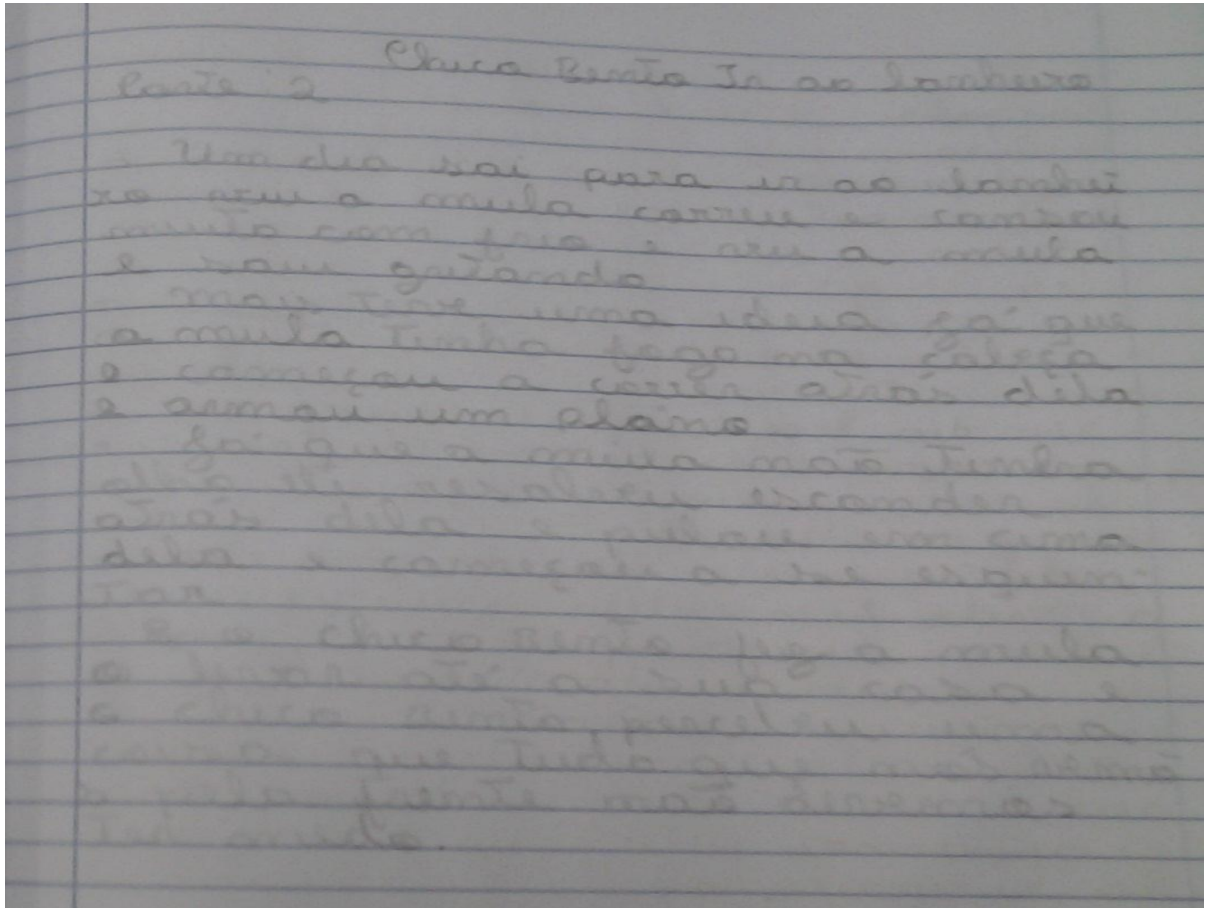 Chico Bento Ir ao banheiro
Parte 2
Um dia sai para ir ao banhei
ro veiu a mula correu e
muito com frio e veiu a mula
e saiu gritando
mais Tive uma ideia só que
a mula Tinha fogo na cabeça
e começou a correr atrás dela
e armou um plano
Só que a não Tinha
esconder
atrás dela e pulou em cima
dela e começou a se esquen-
Tar
E o Chico Bento fez a mula
o levar até a sua casa e
o Chico Bento percebeu uma
coisa que Tudo que
pela frente não devemos
muito.